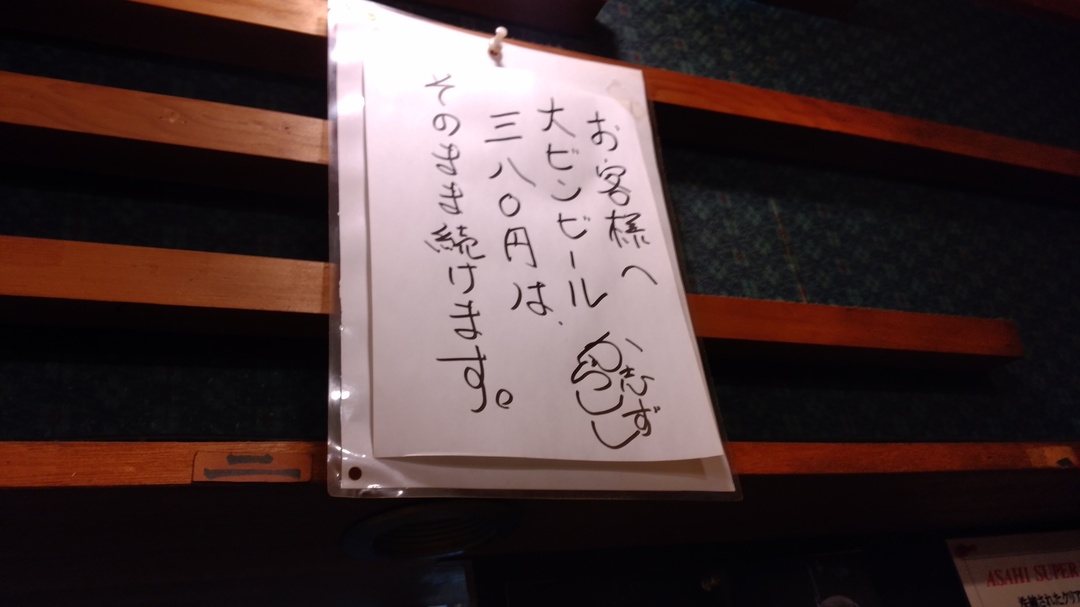 お客様へ
大ビンビール
三八〇円は、
そのまま続けます。
二
ASAHI SUPER